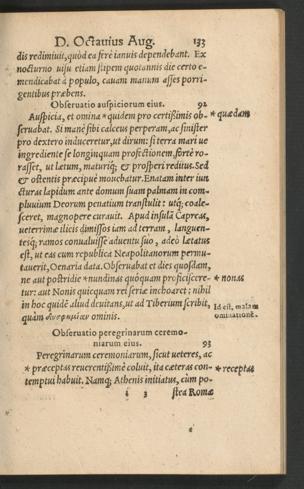 D. Octauius Aug. 133
dis redimiuit, quòd ea ferè ianuis dependebant. Ex
nocturno uisu etiam stipem quotannis die certo e-
mendicabat à populo, cauam manum asses porri-
gentibus præbens.
Obseruatio auspiciorum eius. 92
Auspicia, et omina * quidem pro certissimis ob- * quædam
seruabat. Si manè sibi calceus perperam, ac sinister
pro dextero induceretur, ut dirum: si terra mari ue
ingrediente se longinquam profectionem, fortè ro-
rasset, ut lætum, maturiq; & prosperi reditus. Sed
& ostentis præcipuè mouebatur. Enatam inter iun
cturas lapidum ante domum suam palmam in com-
pluuium Deorum penatium transtulit: utq; coale-
sceret, magnopere curauit. Apud insulã Capreas,
ueterrimæ ilicis dimissos iam ad terram, languen-
tesq; ramos conualuisse aduentu suo, adeò lætatus
est, ut eas cum republica Neapolitanorum permu-
tauerit, Oenaria data. Obseruabat et dies quosdam,
ne aut postridie * nundinas quòquam proficiscere- * nonas
tur: aut Nonis quicquam rei seriæ inchoaret: nihil
in hoc quidẽ aliud deuitans, ut ad Tiberium scribit, Id est, malam
quàm ominis. ominationẽ.
Obseruatio peregrinarum ceremo-
niarum eius. 93
Peregrinarum ceremoniarum, sicut ueteres, ac
* præceptas reuerentissimè coluit, ita cæteras con- * receptas
temptui habuit. Namq; Athenis initiatus, cum po-
i 3 stea Romæ